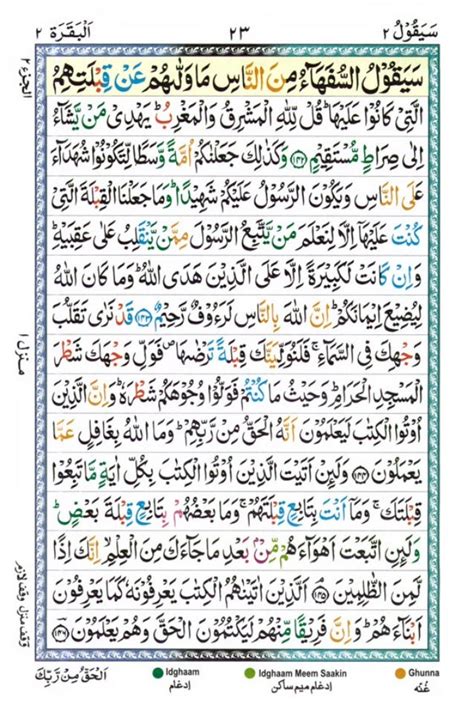 سَيَقُوْلُ ٢ ٢٣ اَلْبَقَرَة ٢
سَيَقُوْلُ السُّفَهَآءُ مِنَ النَّاسِ مَا وَلّٰىهُمْ عَنْ قِبْلَتِهِمُ
الَّتِيْ كَانُوْا عَلَيْهَا ؕ قُلْ لِّلّٰهِ الْمَشْرِقُ وَالْمَغْرِبُ ؕ يَهْدِيْ مَنْ يَّشَآءُ
اِلٰى صِرَاطٍ مُّسْتَقِيْمٍ ﴿١٤٢﴾ وَكَذٰلِكَ جَعَلْنٰكُمْ اُمَّةً وَّسَطًا لِّتَكُوْنُوْا شُهَدَآءَ
عَلَى النَّاسِ وَيَكُوْنَ الرَّسُوْلُ عَلَيْكُمْ شَهِيْدًا ؕ وَمَا جَعَلْنَا الْقِبْلَةَ الَّتِيْ
كُنْتَ عَلَيْهَآ اِلَّا لِنَعْلَمَ مَنْ يَّتَّبِعُ الرَّسُوْلَ مِمَّنْ يَّنْقَلِبُ عَلٰى عَقِبَيْهِ ؕ
وَاِنْ كَانَتْ لَكَبِيْرَةً اِلَّا عَلَى الَّذِيْنَ هَدَى اللّٰهُ ؕ وَمَا كَانَ اللّٰهُ
لِيُضِيْعَ اِيْمَانَكُمْ ؕ اِنَّ اللّٰهَ بِالنَّاسِ لَرَءُوْفٌ رَّحِيْمٌ ﴿١٤٣﴾ قَدْ نَرٰى تَقَلُّبَ
وَجْهِكَ فِي السَّمَآءِ ۚ فَلَنُوَلِّيَنَّكَ قِبْلَةً تَرْضٰىهَا ۪ فَوَلِّ وَجْهَكَ شَطْرَ
الْمَسْجِدِ الْحَرَامِ ؕ وَحَيْثُ مَا كُنْتُمْ فَوَلُّوْا وُجُوْهَكُمْ شَطْرَهٗ ؕ وَاِنَّ الَّذِيْنَ
اُوْتُوا الْكِتٰبَ لَيَعْلَمُوْنَ اَنَّهُ الْحَقُّ مِنْ رَّبِّهِمْ ؕ وَمَا اللّٰهُ بِغَافِلٍ عَمَّا
يَعْمَلُوْنَ ﴿١٤٤﴾ وَلَئِنْ اَتَيْتَ الَّذِيْنَ اُوْتُوا الْكِتٰبَ بِكُلِّ اٰيَةٍ مَّا تَبِعُوْا
قِبْلَتَكَ ۚ وَمَآ اَنْتَ بِتَابِعٍ قِبْلَتَهُمْ ۚ وَمَا بَعْضُهُمْ بِتَابِعٍ قِبْلَةَ بَعْضٍ ؕ
وَلَئِنِ اتَّبَعْتَ اَهْوَآءَهُمْ مِّنْۢ بَعْدِ مَا جَآءَكَ مِنَ الْعِلْمِ ۙ اِنَّكَ اِذًا
لَّمِنَ الظّٰلِمِيْنَ ﴿١٤٥﴾ اَلَّذِيْنَ اٰتَيْنٰهُمُ الْكِتٰبَ يَعْرِفُوْنَهٗ كَمَا يَعْرِفُوْنَ
اَبْنَآءَهُمْ ؕ وَاِنَّ فَرِيْقًا مِّنْهُمْ لَيَكْتُمُوْنَ الْحَقَّ وَهُمْ يَعْلَمُوْنَ ﴿١٤٦﴾
الجزء ٢
منزل ١
وقف منزل وقف لازم
اَلْحَقُّ مِنْ رَّبِّكَ
Idghaam
ادغام
Idghaam Meem Saakin
ادغام میم ساکن
Ghunna
غُنّه